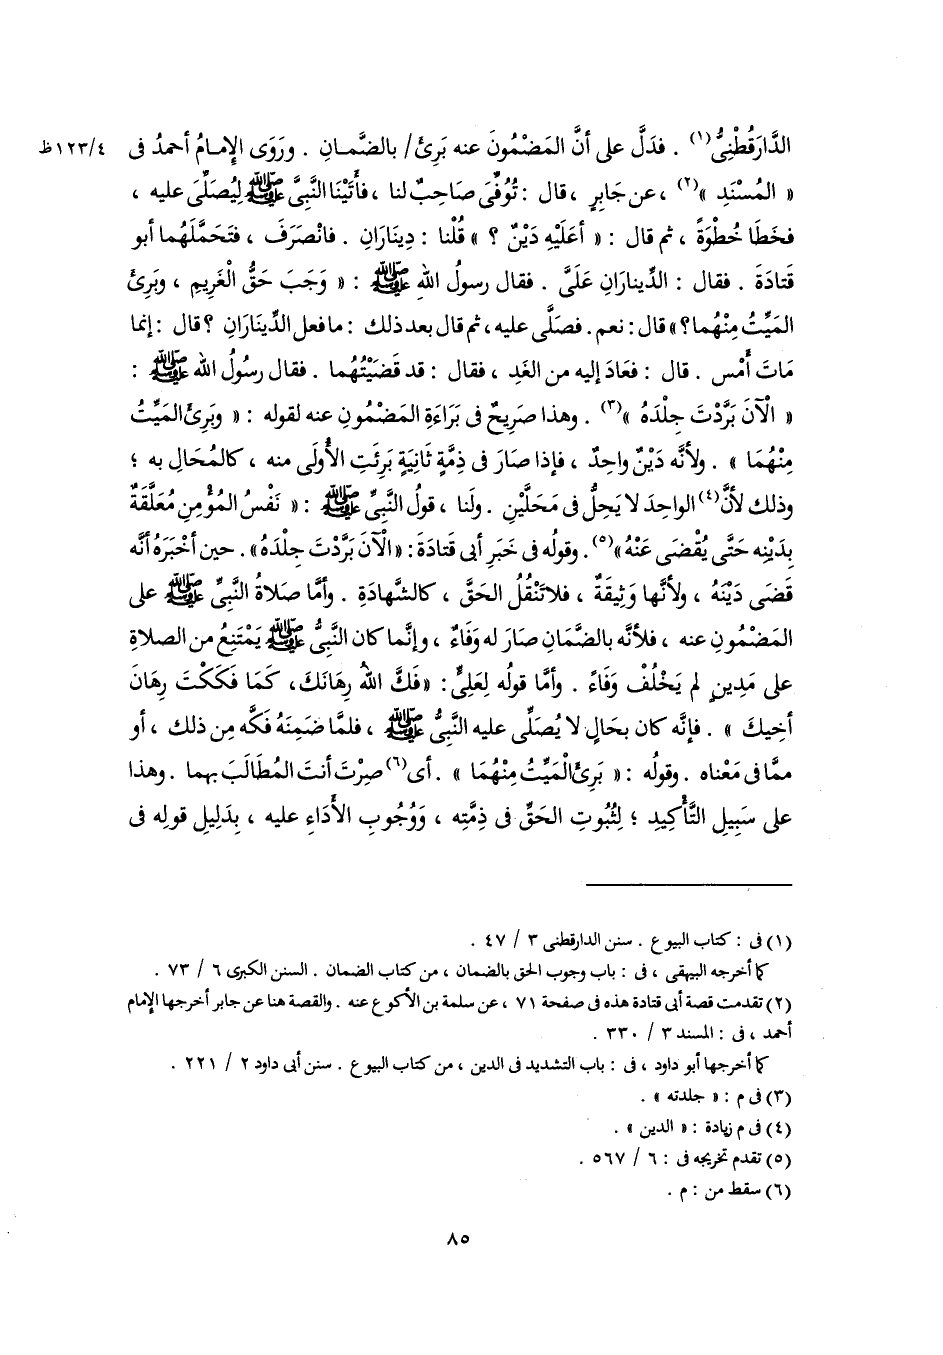 الدَّارَقُطْنِىُّ(١) . فدَلَّ على أنَّ المَضْمُونَ عنه بَرِئَ/ بالضَّمانِ . ورَوَى الإِمامُ أحمدُ فى ١٢٣/٤ظ
« المُسْنَدِ »(٢) ، عن جَابِرٍ ، قال : تُوُفِّىَ صَاحِبٌ لنا ، فأَتَيْنَا النَّبِىَّ ﷺ لِيُصَلِّىَ عليه ،
فخَطَا خُطْوَةً ، ثم قال : « أعَلَيْهِ دَيْنٌ ؟ » قُلْنا : دِينَارَانِ . فانْصَرَفَ ، فتَحَمَّلَهُما أبو
قَتادَةَ . فقال : الدِّينارَانِ عَلَىَّ . فقال رسولُ اللهِ ﷺ : « وَجَبَ حَقُّ الْغَرِيمِ ، وبَرِئَ
المَيِّتُ مِنْهُما ؟ » قال : نعم . فصَلَّى عليه ، ثم قال بعد ذلك : ما فعل الدِّينَارَانِ ؟ قال : إنما
مَاتَ أَمْسِ . قال : فعَادَ إليه من الغَدِ ، فقال : قد قَضَيْتُهُما . فقال رسُولُ اللهِ ﷺ :
« الْآنَ بَرَّدْتَ جِلْدَهُ »(٣) . وهذا صَرِيحٌ فى بَرَاءَةِ المَضْمُونِ عنه لقوله : « وبَرِئَ المَيِّتُ
مِنْهُمَا » . ولأنَّه دَيْنٌ واحِدٌ ، فإذا صَارَ فى ذِمَّةٍ ثانِيَةٍ بَرِئَتِ الأُولَى منه ، كالمُحَالِ به ؛
وذلك لأنَّ(٤) الواحِدَ لا يَحِلُّ فى مَحَلَّيْنِ . ولَنا ، قولُ النَّبِىِّ ﷺ : « نَفْسُ المُؤْمِنِ مُعَلَّقَةٌ
بِدَيْنِه حَتَّى يُقْضَى عَنْهُ »(٥) . وقولُه فى خَبَرِ أبى قَتادَةَ : « الْآنَ بَرَّدْتَ جِلْدَهُ » . حين أخْبَرَهُ أنَّه
قَضَى دَيْنَهُ ، ولأنَّها وَثِيقَةٌ ، فلا تَنْقُلُ الحَقَّ ، كالشَّهادَةِ . وأمَّا صَلاةُ النَّبِىِّ ﷺ على
المَضْمُونِ عنه ، فلأنَّه بالضَّمَانِ صَارَ له وَفَاءٌ ، وإنَّما كان النَّبِىُّ ﷺ يَمْتَنِعُ من الصلاةِ
على مَدِينٍ لم يَخْلُفْ وَفَاءً . وأمَّا قولُه لِعَلِىٍّ : « فَكَّ اللهُ رِهَانَكَ ، كَمَا فَكَكْتَ رِهَانَ
أخِيكَ » . فإنَّه كان بحَالٍ لا يُصَلِّى عليه النَّبِىُّ ﷺ ، فلمَّا ضَمِنَهُ فَكَّه مِن ذلك ، أو
ممَّا فى مَعْناه . وقولُه : « بَرِئَ الْمَيِّتُ مِنْهُمَا » . أى(٦) صِرْتَ أنتَ المُطَالَبَ بهما . وهذا
على سَبِيلِ التَّأْكِيدِ ؛ لِثُبُوتِ الحَقِّ فى ذِمَّتِه ، وَوُجُوبِ الأَدَاءِ عليه ، بِدَلِيلِ قولِه فى
(١) فى : كتاب البيوع . سنن الدارقطنى ٣ / ٤٧ .
كما أخرجه البيهقى ، فى : باب وجوب الحق بالضمان ، من كتاب الضمان . السنن الكبرى ٦ / ٧٣ .
(٢) تقدمت قصة أبى قتادة هذه فى صفحة ٧١ ، عن سلمة بن الأكوع عنه . والقصة هنا عن جابر أخرجها الإمام
أحمد ، فى : المسند ٣ / ٣٣٠ .
كما أخرجها أبو داود ، فى : باب التشديد فى الدين ، من كتاب البيوع . سنن أبى داود ٢ / ٢٢١ .
(٣) فى م : « جلدته » .
(٤) فى م زيادة : « الدين » .
(٥) تقدم تخريجه فى : ٦ / ٥٦٧ .
(٦) سقط من : م .
٨٥